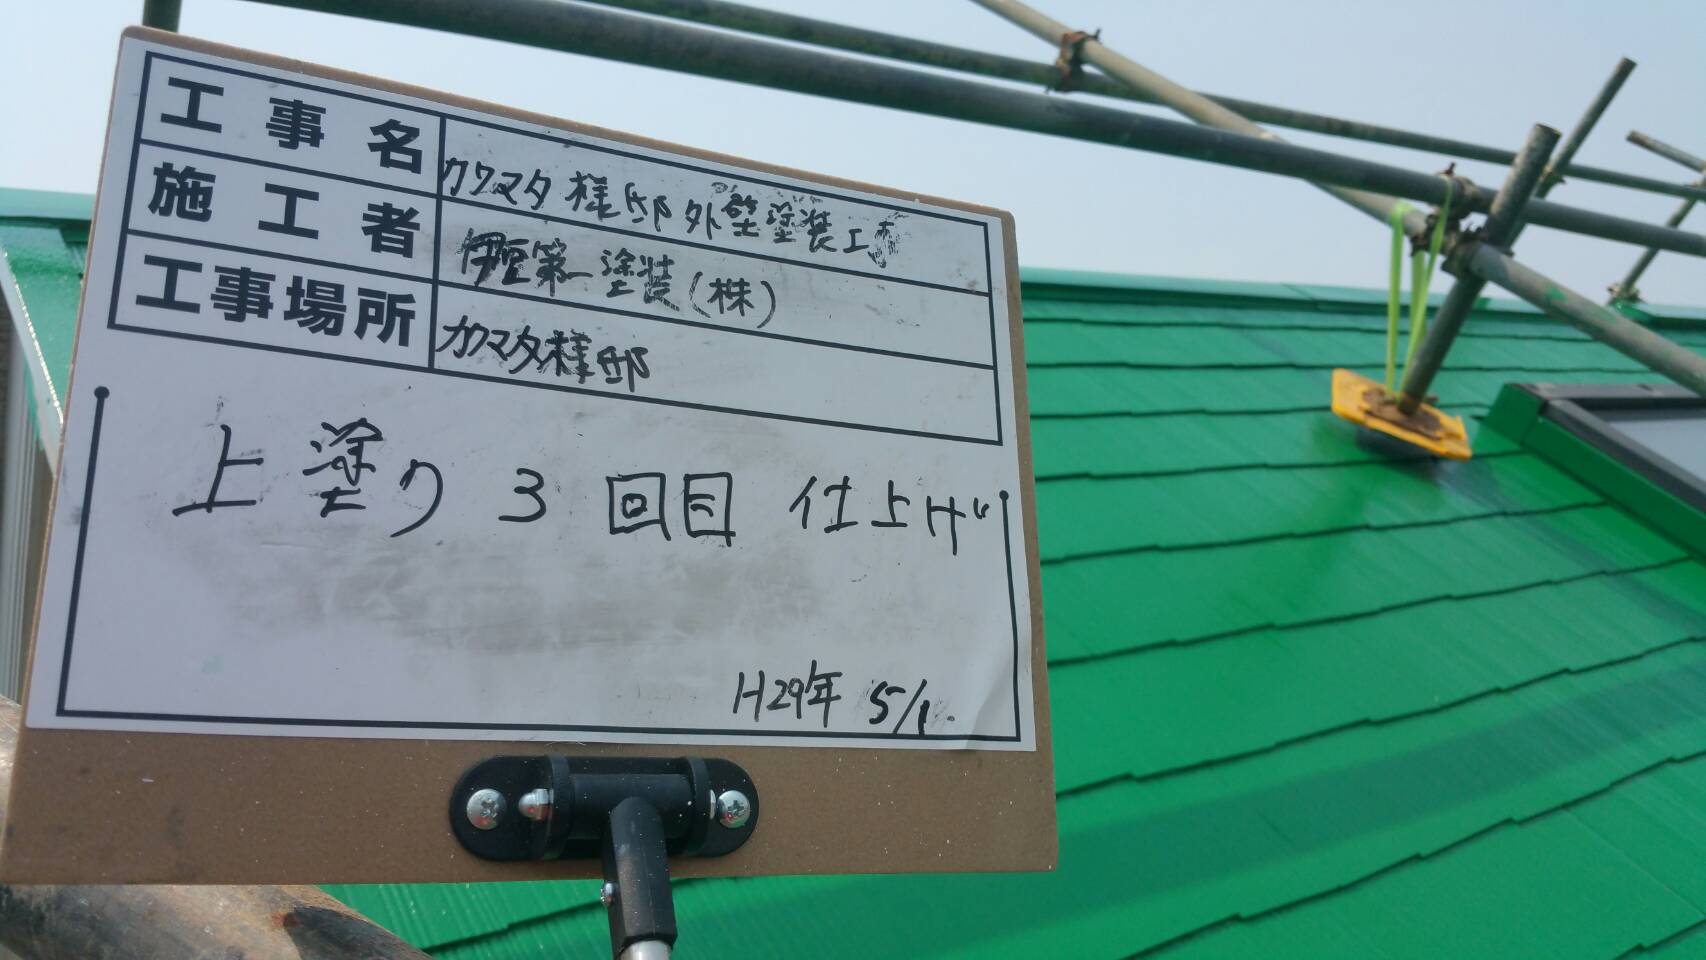 工事名 カワマタ様邸外壁塗装工事
施工者 伊豆第一塗装(株)
工事場所 カワマタ様邸
上塗り 3回目 仕上げ
H29年 5/1.